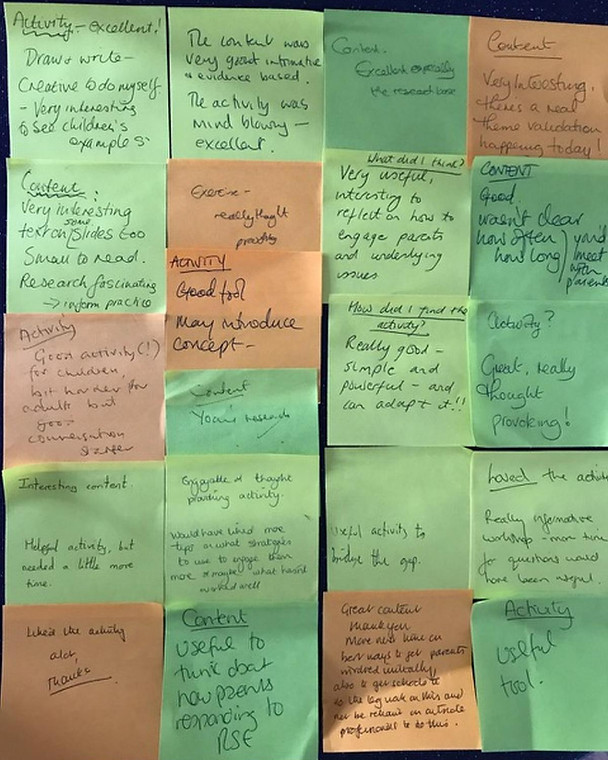 Activity - excellent!
Draw & write -
Creative to do myself.
- Very interesting
to see children's
examples
The content was
very good informative
& evidence based.
The activity was
mind blowing -
excellent.
Content.
Excellent especially
the research base
Content
Very interesting,
there's a real
theme validation
happening today!
Content:
Very interesting
text on some slides too
small to read.
Research fascinating
→ inform practice
Exercise -
really thought
provoking
What did I think?
Very useful,
interesting to
reflect on how to
engage parents
and underlying
issues
CONTENT
Good.
wasn't clear
how often
how long
you'd
meet
with
parents
ACTIVITY
Good tool
May introduce
concept -
How did I find the
activity?
Really good -
simple and
powerful - and
can adapt it!!
Activity?
Great, really
thought
provoking!
Activity
Good activity (!)
for children,
bit harder for
adults but
good
conversation
starter
Content
Your research
Interesting content.
Helpful activity, but
needed a little more
time.
Enjoyable & thought
provoking activity.
Would have liked more
tips on what strategies
to use to engage them
more & maybe what hasn't
worked well
Useful activity to
bridge the gap.
Loved the activity
Really informative
workshop - more time
for questions would
have been useful.
Liked the activity
alot,
Thanks
Content
useful to
think about
how parents
responding to
RSE
Great content
thank you
More next time on
best ways to get parents
involved initially,
also to get schools to
do the leg work on this and
not be reliant on outside
professionals to do this.
Activity
useful
tool.